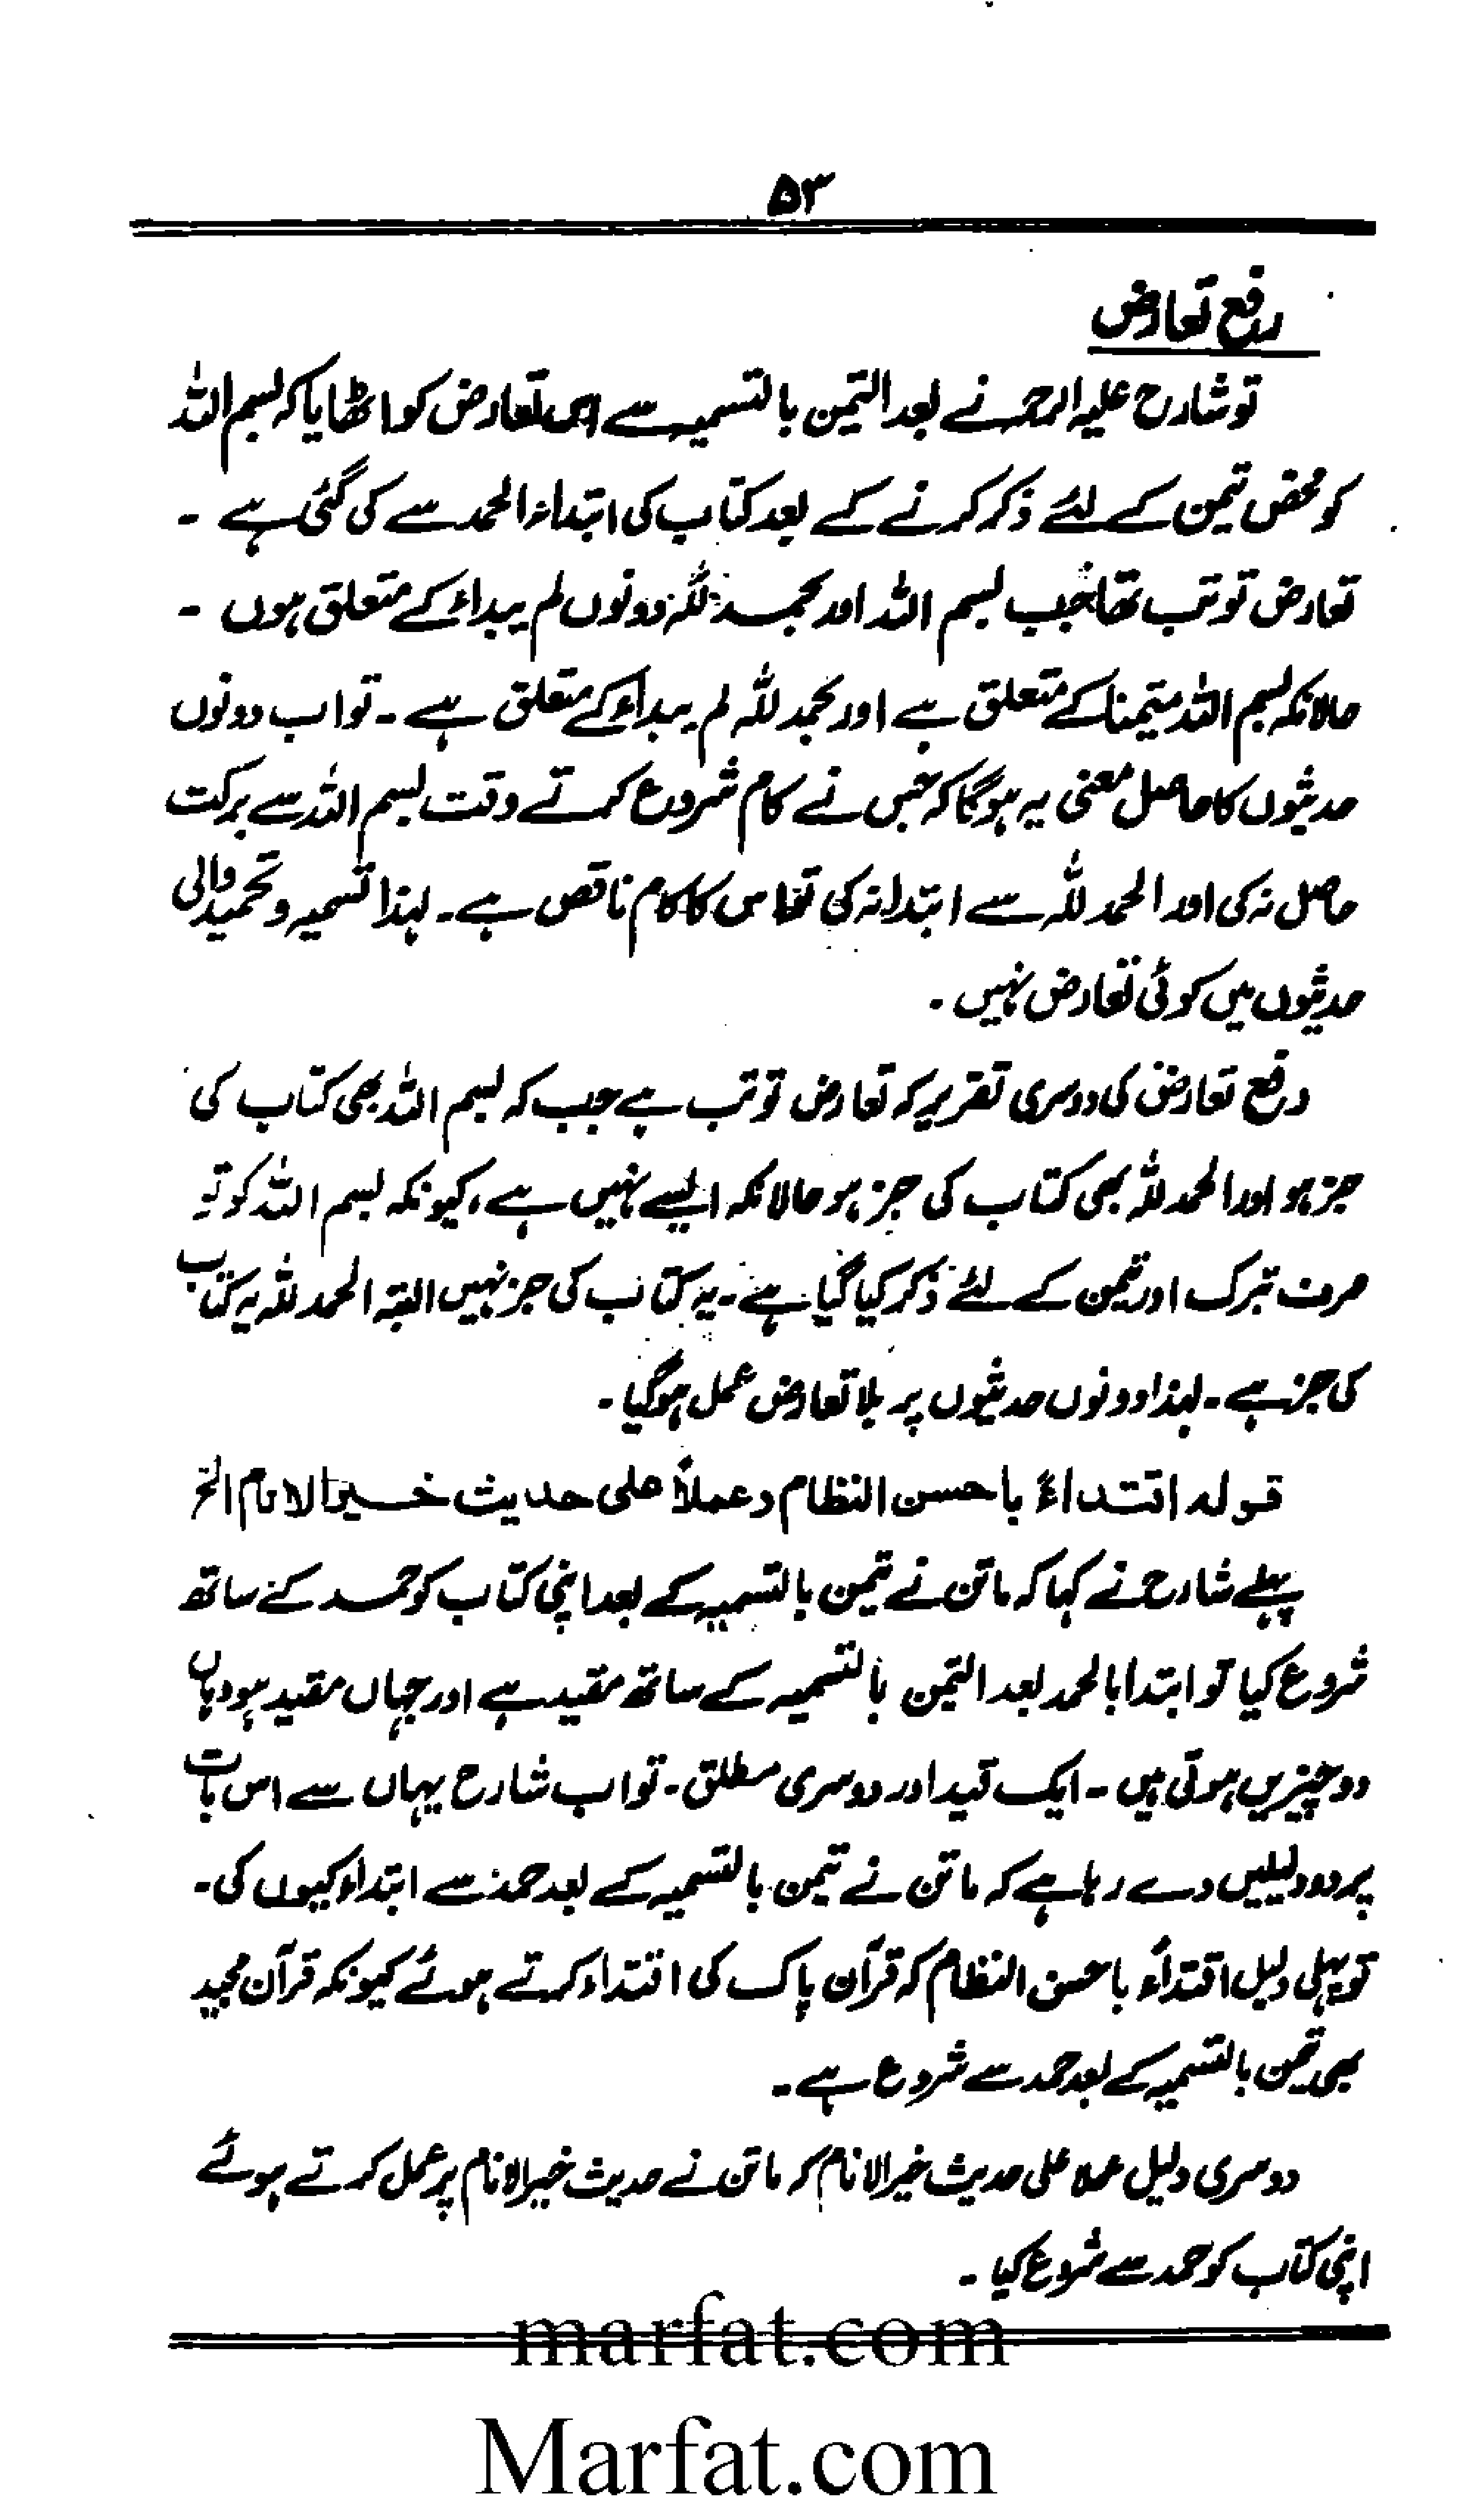 ۵۳
رفع تعارض
تو شارح علیہ الرحمہ نے بعد التیمن بالتسمیہ سے اس تعارض کو اٹھایا کہ بسم اللہ
کو محض تیمن کے لئے ذکر کرنے کے بعد کتاب کی ابتداء الحمد سے کی گئی ہے ۔
تعارض تو تب تھا جب بسم اللہ اور بحمد للہ دونوں لم یبداء کے متعلق ہوں ۔
حالانکہ بسم اللہ متیمنا کے متعلق ہے اور بحمد للہ لم یبداء کے متعلق ہے ۔ تو اب دونوں
حدیثوں کا حاصل معنی یہ ہو گا کہ جس نے کام شروع کرتے وقت بسم اللہ سے برکت
حاصل نہ کی اور الحمد للہ سے ابتداء نہ کی تو اس کا کام ناقص ہے ۔ لہذا تسمیہ و تحمید والی
حدیثوں میں کوئی تعارض نہیں ۔
رفع تعارض کی دوسری تقریر کہ تعارض تو تب ہے جب کہ بسم اللہ بھی کتاب کی
جز ہو اور الحمد للہ بھی کتاب کی جز ہو حالانکہ ایسے نہیں ہے ، کیونکہ بسم اللہ کو تو
صرف تبرک اور تیمن کے لئے ذکر کیا گیا ہے ۔ یہ کتاب کی جز نہیں البتہ الحمد للہ یہ کتاب
کی جز ہے ۔ لہذا دونوں حدیثوں پر بلا تعارض عمل ہو گیا ۔
قولہ اقتداءً باحسن النظام وعملاً علی حدیث خیر الانام الخ
پہلے شارح نے کہا کہ ماتن نے تیمن بالتسمیہ کے بعد اپنی کتاب کو حمد کے ساتھ
شروع کیا تو ابتدا بالحمد بعد التیمن بالتسمیہ کے ساتھ مقید ہے اور جہاں مقید ہو وہاں
دو چیزیں ہوتی ہیں ۔ ایک قید اور دوسری مطلق ۔ تو اب شارح یہاں سے اس بات
پر دو دلیلیں دے رہا ہے کہ ماتن نے تیمن بالتسمیہ کے بعد حمد سے ابتداء کیوں کی ۔
تو پہلی دلیل اقتداءً باحسن النظام کہ قرآن پاک کی اقتداء کرتے ہوئے کیونکہ قرآن مجید
بھی تیمن بالتسمیہ کے بعد حمد سے شروع ہے ۔
دوسری دلیل عملا علی حدیث خیر الانام کہ ماتن نے حدیث خیر الانام پر عمل کرتے ہوئے
اپنی کتاب کو حمد سے شروع کیا ۔
marfat.com
Marfat.com